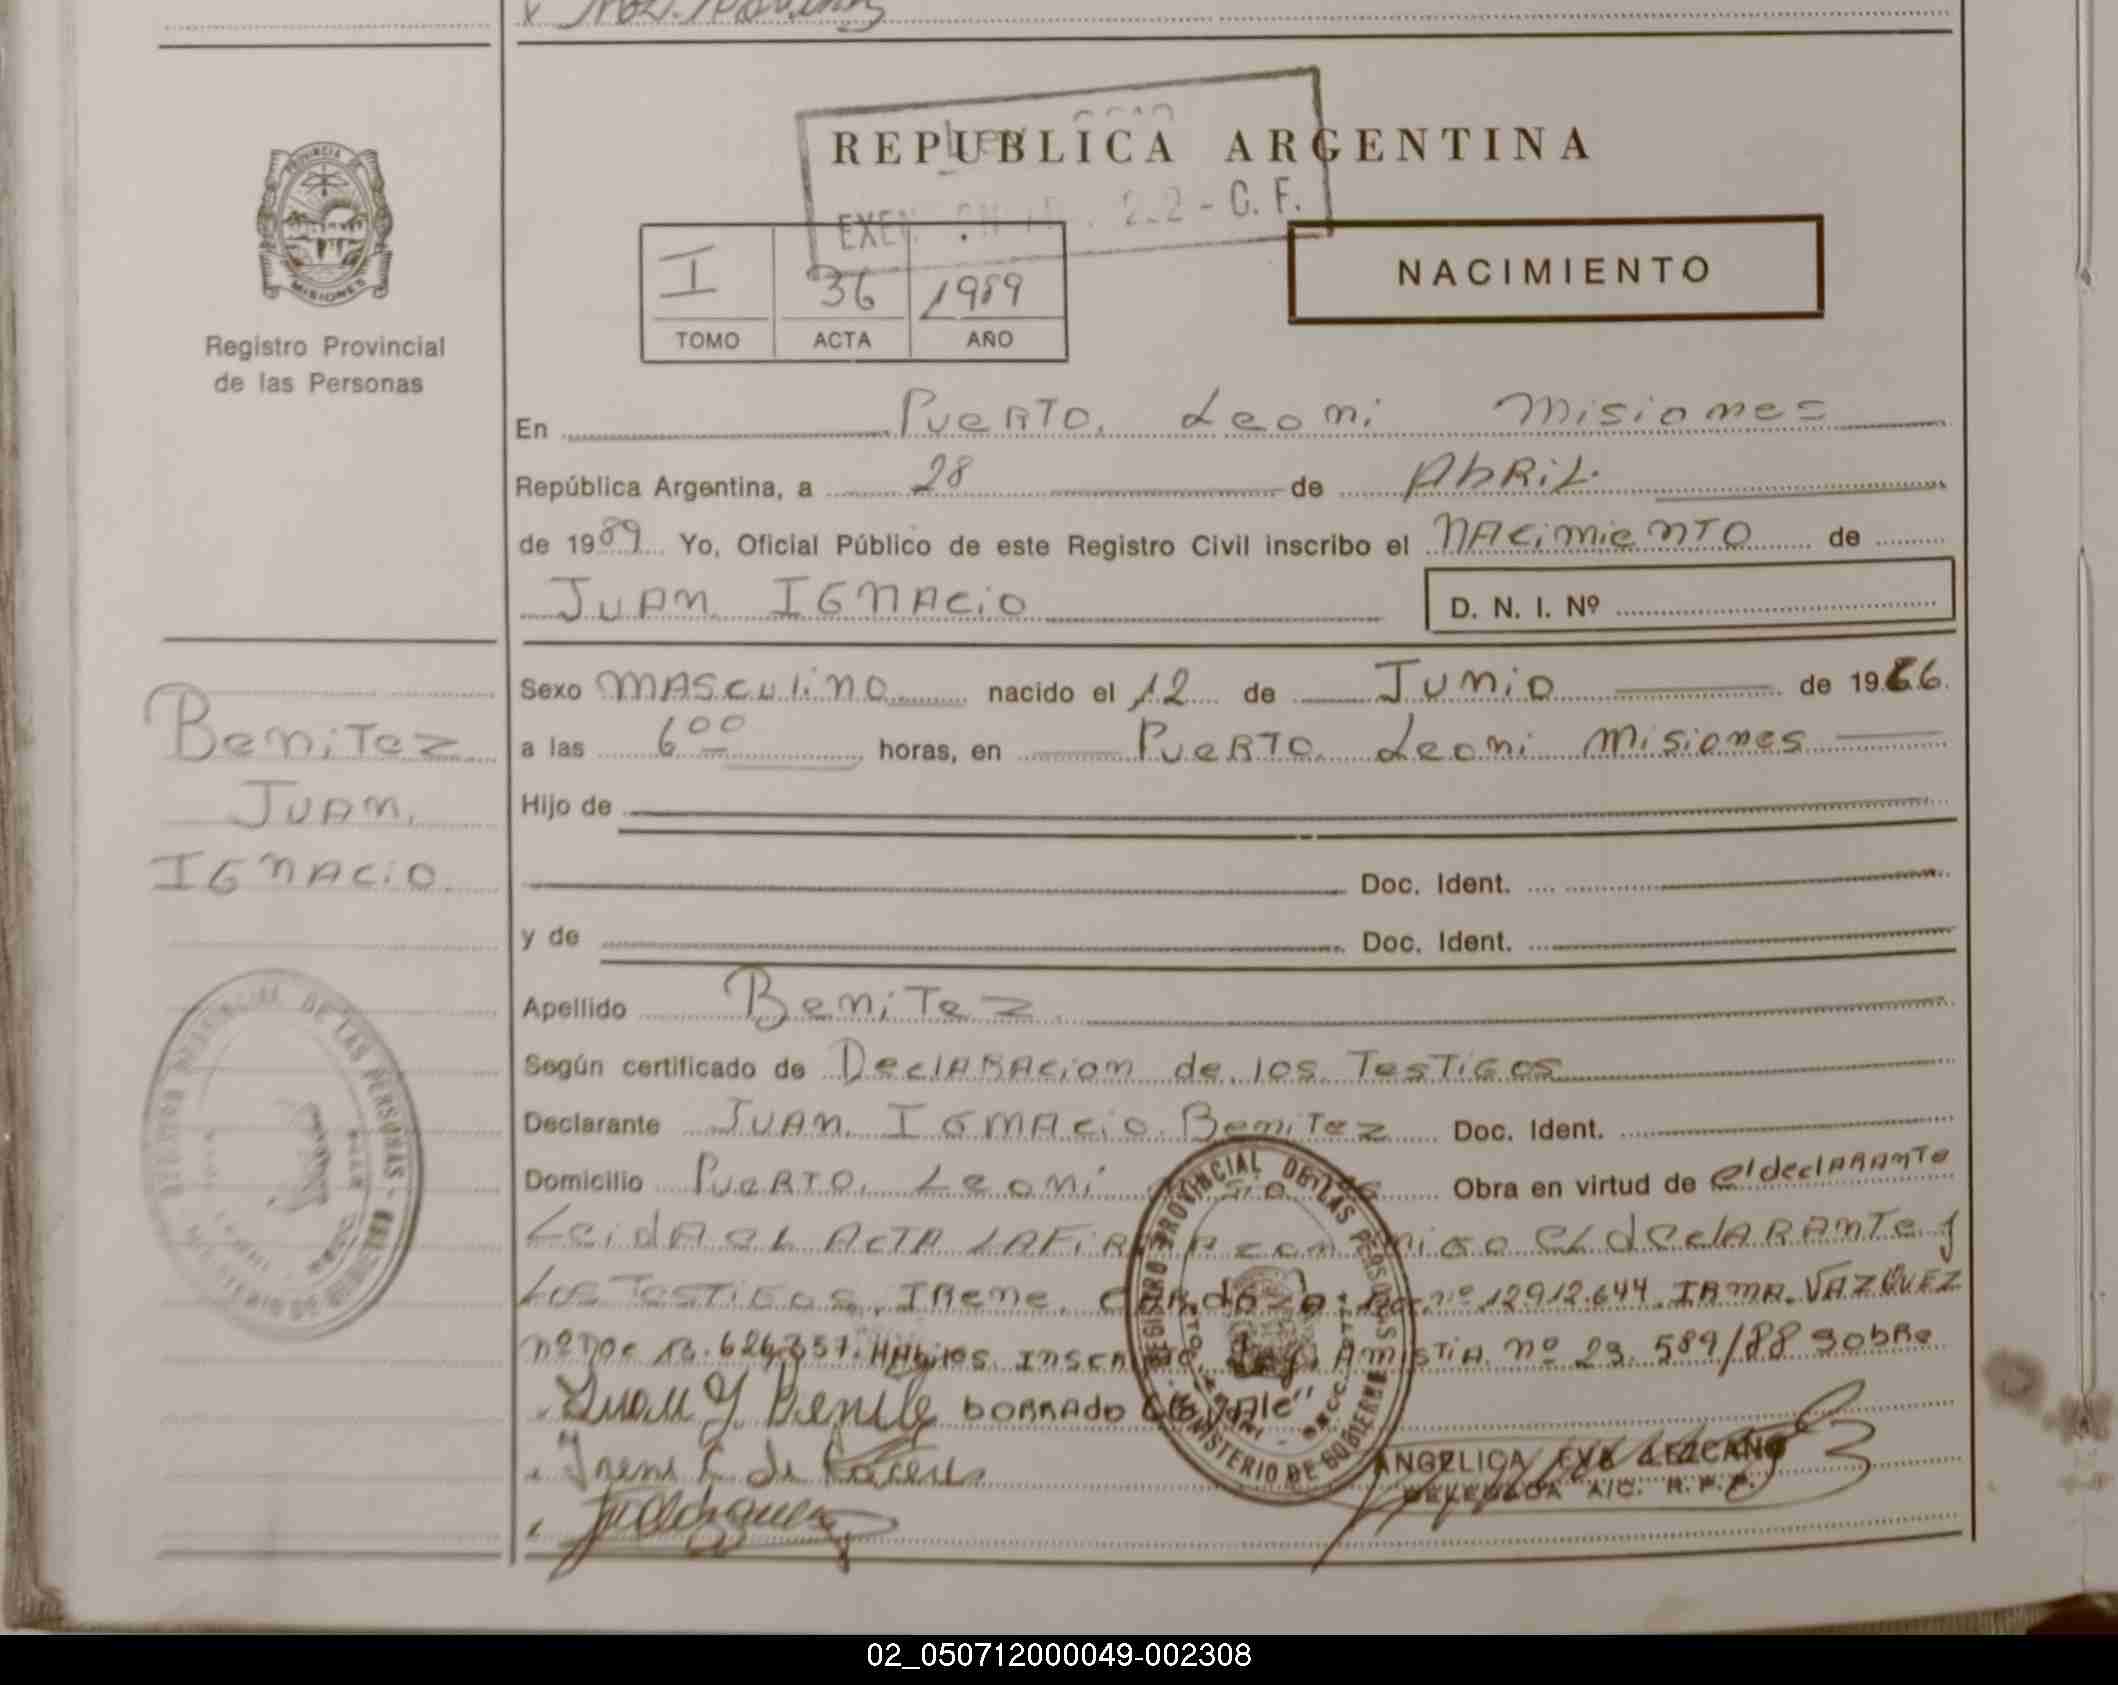 REPUBLICA ARGENTINA
2.2 - C. F.
PROVINCIA DE
MISIONES
Registro Provincial
de las Personas
I 36 1989
TOMO ACTA AÑO
NACIMIENTO
En Puerto Leoni Misiones
República Argentina, a 28 de Abril
de 1989 Yo, Oficial Público de este Registro Civil inscribo el nacimiento de
Juan Ignacio D. N. I. Nº
Benitez
Juan
Ignacio
Sexo masculino nacido el 12 de Junio de 1966
a las 6 00 horas, en Puerto Leoni Misiones
Hijo de
Doc. Ident.
y de Doc. Ident.
Apellido Benitez
Según certificado de Declaracion de los Testigos
Declarante Juan Ignacio Benitez Doc. Ident.
Domicilio Puerto Leoni Obra en virtud de el declarante
Leida el Acta la firma conmigo el declarante y
los Testigos, Irene nº 12912.644 Irma Vazquez
nº Doc 13.624.357. Amistia nº 23.589/88 sobre
borrado "vale"
REGISTRO PROVINCIAL DE LAS PERSONAS
MINISTERIO DE GOBIERNO
ANGELICA EVA LEZCANO
DELEGADA A/C. R. P. P.
02_050712000049-002308